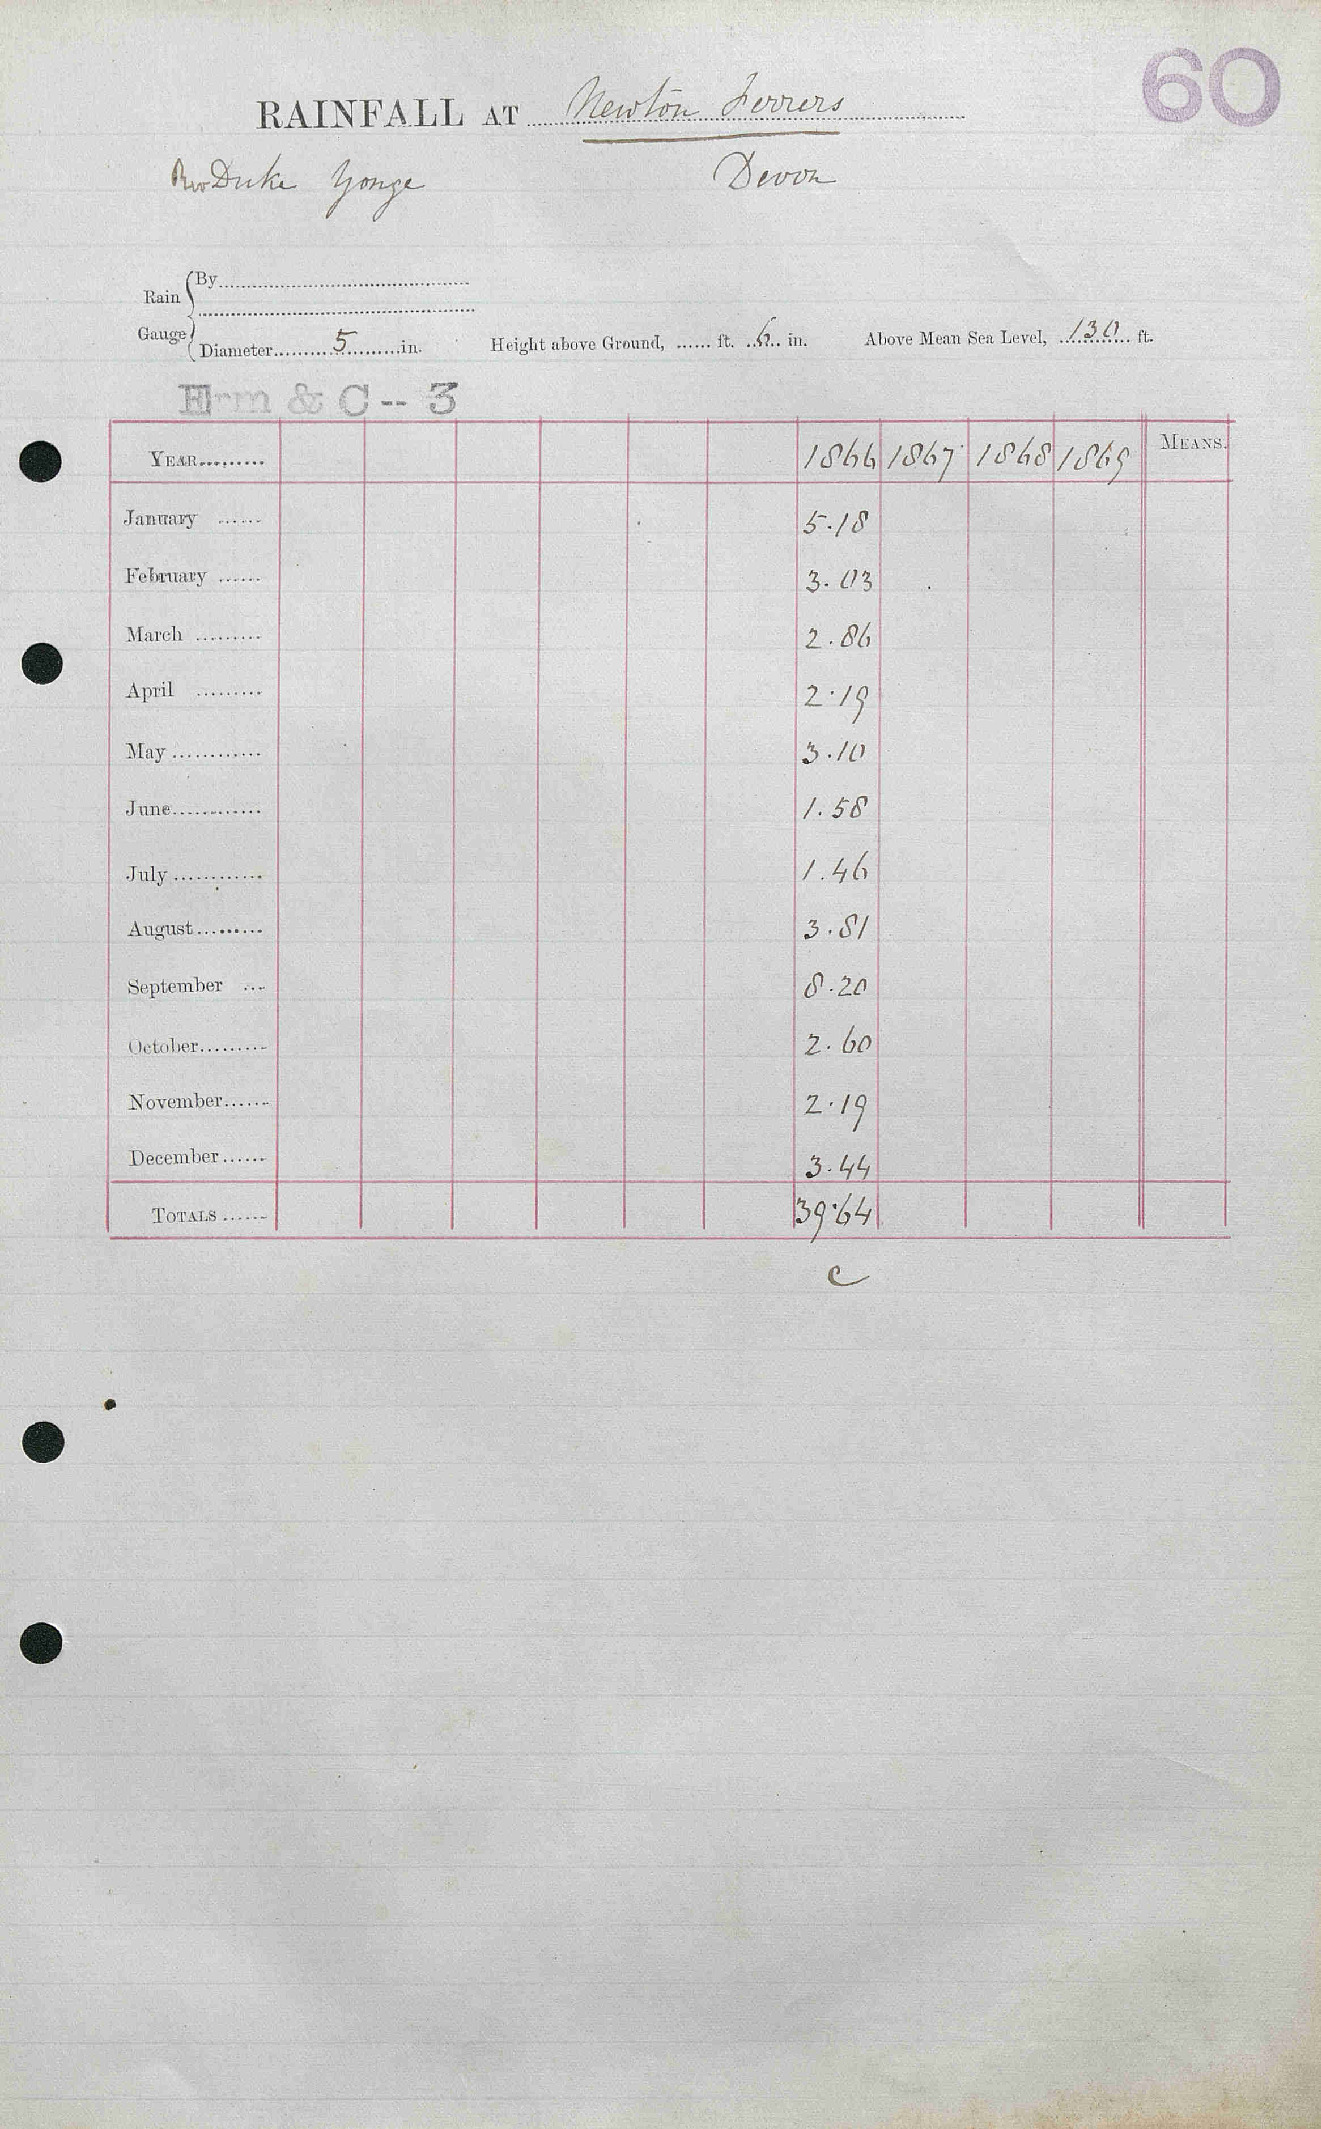 60
RAINFALL AT Newton Ferrers
Rev Duke Yonge Devon
Rain Gauge { By
Diameter 5 in. Height above Ground, ...... ft. 6 in. Above Mean Sea Level, 130 ft.
Erm & C -- 3
YEAR......... 1866 1867 1868 1869 MEANS.
January ...... 5.18
February ...... 3.03
March ......... 2.86
April ......... 2.19
May ............ 3.10
June............ 1.58
July ............ 1.46
August......... 3.81
September ... 8.20
October......... 2.60
November...... 2.19
December...... 3.44
TOTALS ...... 39.64
C